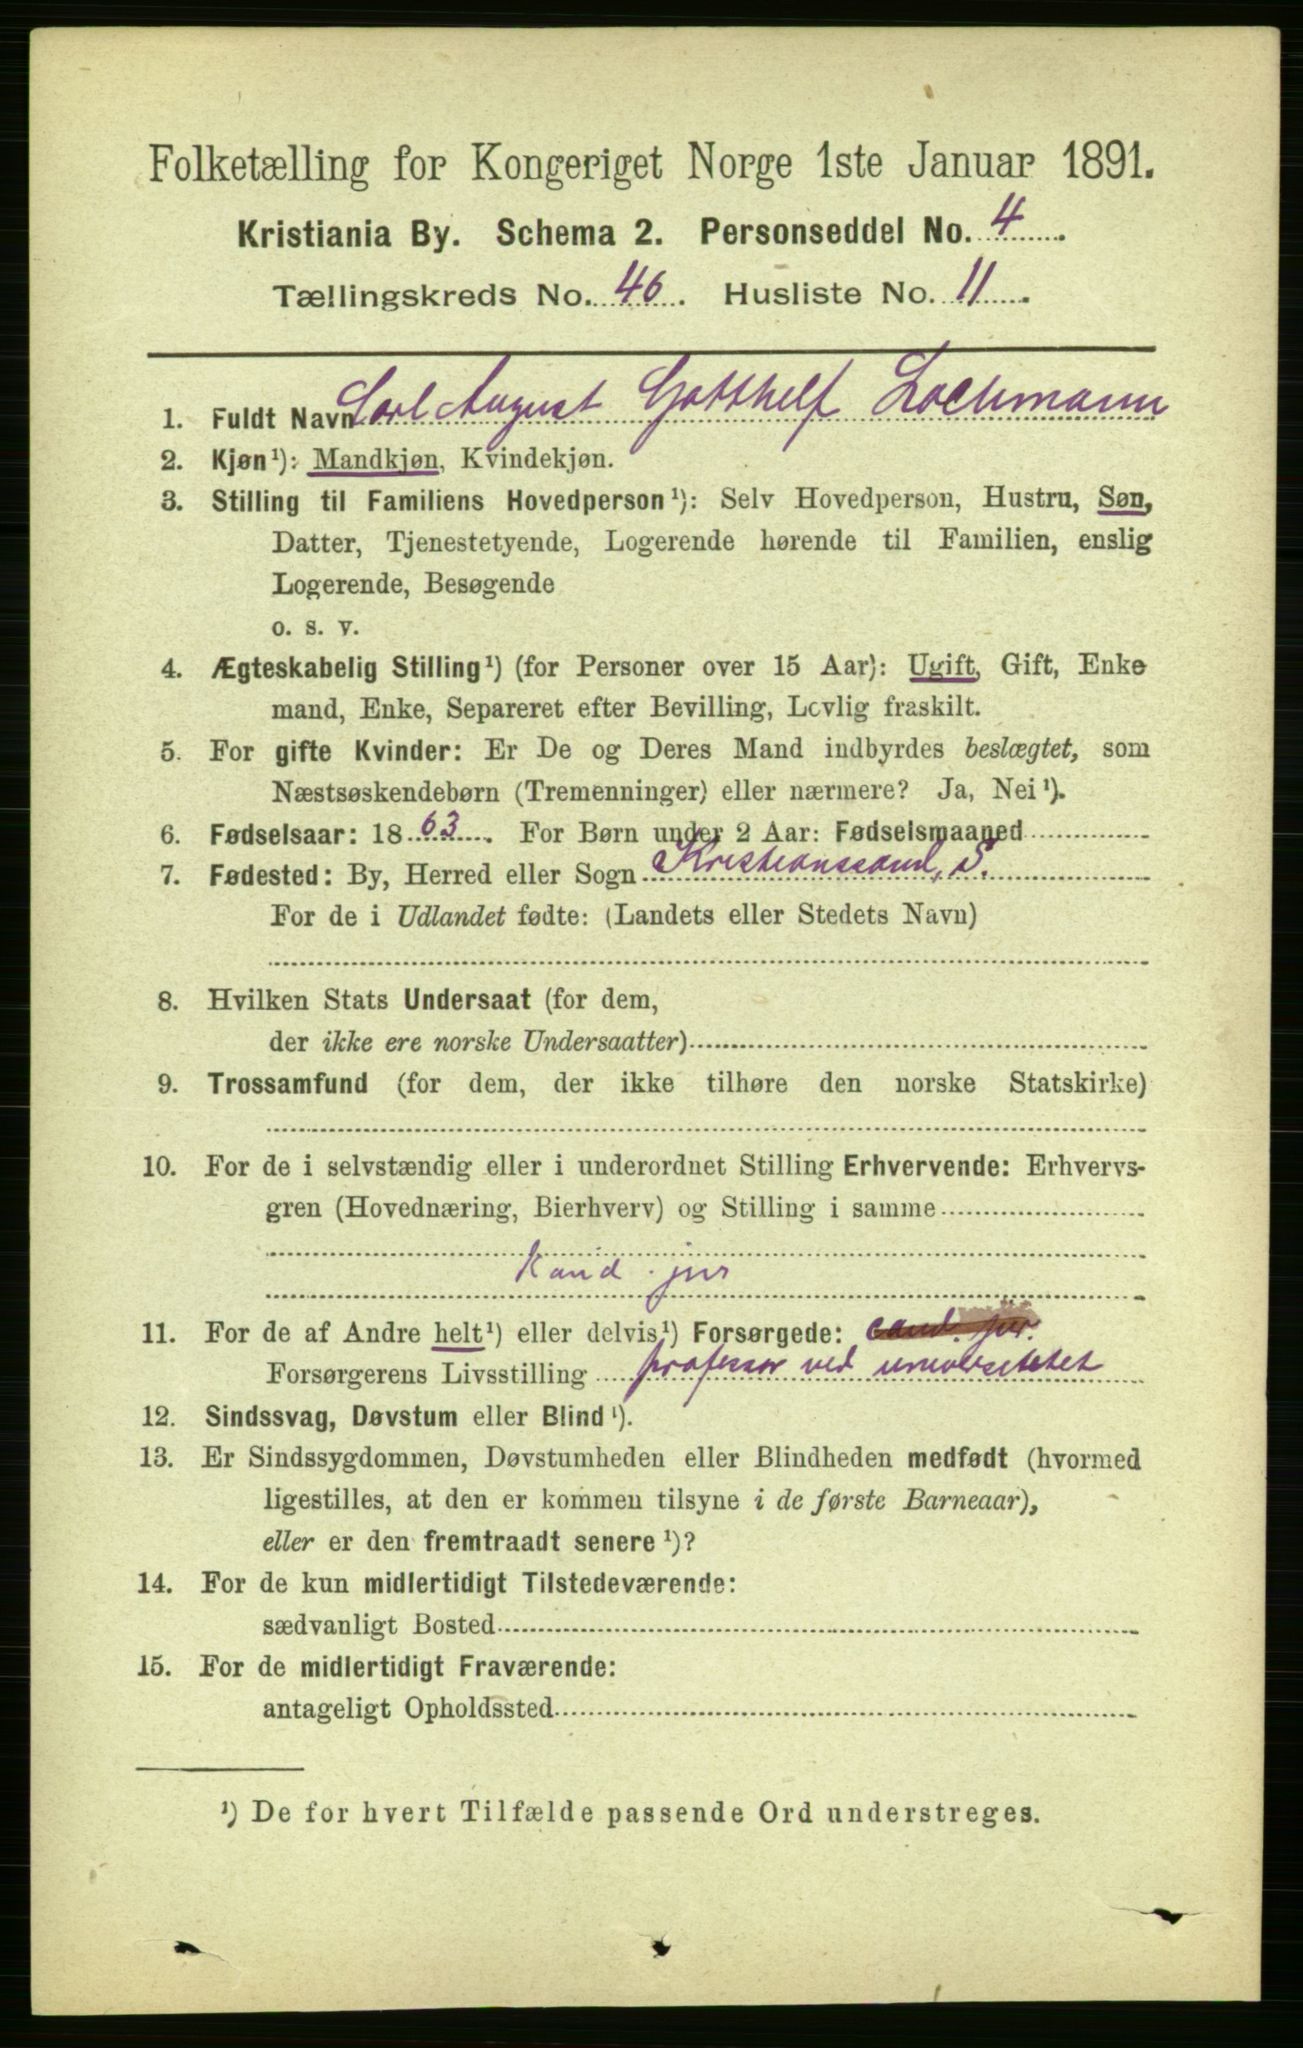 Folketælling for Kongeriget Norge 1ste Januar 1891.
Kristiania By. Schema 2. Personseddel No. 4
Tællingskreds No. 46. Husliste No. 11.
1. Fuldt Navn Carl August Gotthelf Lochmann
2. Kjøn¹): Mandkjøn, Kvindekjøn.
3. Stilling til Familiens Hovedperson¹): Selv Hovedperson, Hustru, Søn,
Datter, Tjenestetyende, Logerende hørende til Familien, enslig
Logerende, Besøgende
o. s. v.
4. Ægteskabelig Stilling¹) (for Personer over 15 Aar): Ugift, Gift, Enke
mand, Enke, Separeret efter Bevilling, Lovlig fraskilt.
5. For gifte Kvinder: Er De og Deres Mand indbyrdes beslægtet, som
Næstsøskendebørn (Tremenninger) eller nærmere? Ja, Nei¹).
6. Fødselsaar: 1863. For Børn under 2 Aar: Fødselsmaaned
7. Fødested: By, Herred eller Sogn Kristianssand, S.
For de i Udlandet fødte: (Landets eller Stedets Navn)
8. Hvilken Stats Undersaat (for dem,
der ikke ere norske Undersaatter)
9. Trossamfund (for dem, der ikke tilhøre den norske Statskirke)
10. For de i selvstændig eller i underordnet Stilling Erhvervende: Erhvervs-
gren (Hovednæring, Bierhverv) og Stilling i samme
Kand. jur
11. For de af Andre helt¹) eller delvis¹) Forsørgede: cand. jur.
Forsørgerens Livsstilling professor ved universitetet
12. Sindssvag, Døvstum eller Blind¹).
13. Er Sindssygdommen, Døvstumheden eller Blindheden medfødt (hvormed
ligestilles, at den er kommen tilsyne i de første Barneaar),
eller er den fremtraadt senere¹)?
14. For de kun midlertidigt Tilstedeværende:
sædvanligt Bosted
15. For de midlertidigt Fraværende:
antageligt Opholdssted
¹) De for hvert Tilfælde passende Ord understreges.